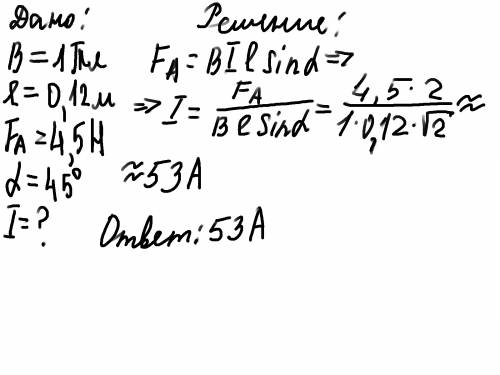 Дано:
B = 1 Тл
ℓ = 0,12 м
F_A = 4,5 Н
α = 45°
I = ?
Решение:
F_A = BIℓ sinα ⇒
⇒ I = F_A / (Bℓ sinα) = (4,5 · 2) / (1 · 0,12 · √2) ≈
≈ 53 А
Ответ: 53 А